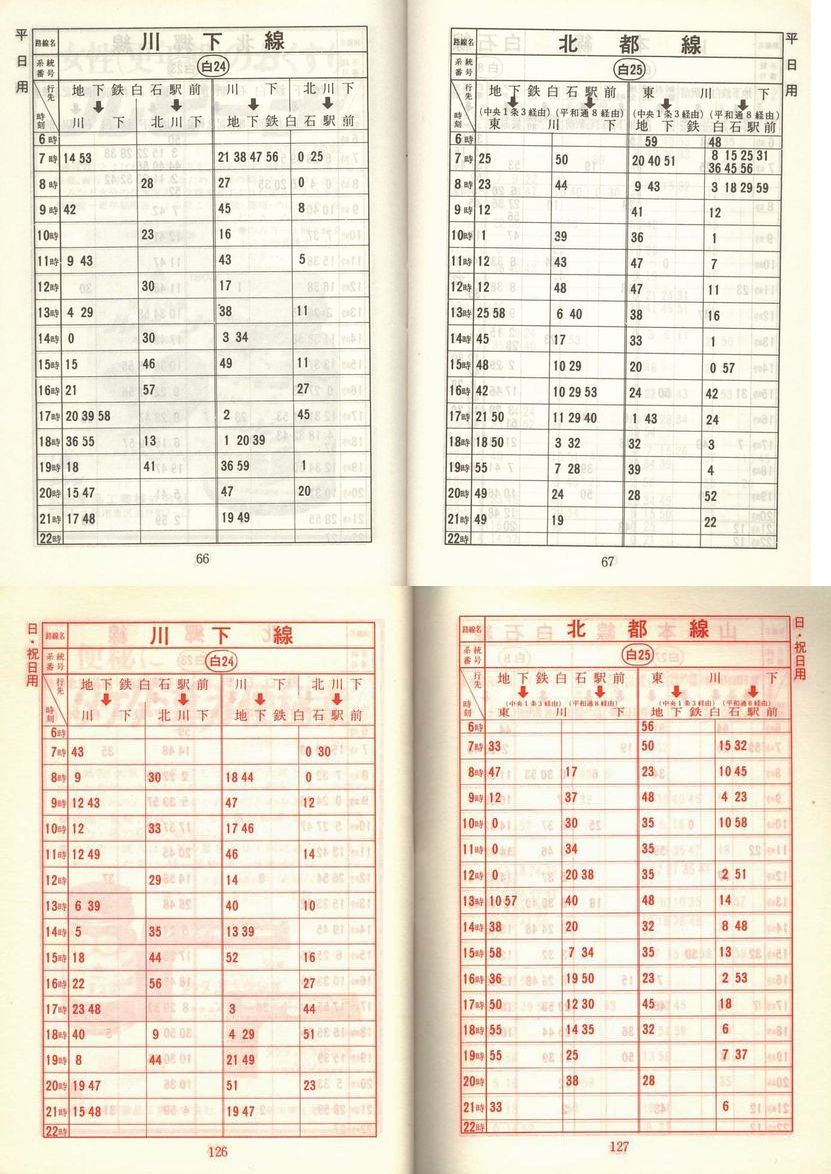 平日用
路線名 川下線
系統番号 白24
行先 地下鉄白石駅前 川下 北川下
時刻 川下 北川下 地下鉄白石駅前
6時
7時 14 53 21 38 47 56 0 25
8時 28 27 0
9時 42 45 8
10時 23 16
11時 9 43 43 5
12時 30 17
13時 4 29 38 11
14時 0 30 3 34
15時 15 46 49 11
16時 21 57 27
17時 20 39 58 2 45
18時 36 55 13 1 20 39
19時 18 41 36 59 1
20時 15 47 47 20
21時 17 48 19 49
22時
66
平日用
路線名 北都線
系統番号 白25
行先 地下鉄白石駅前 東川下
(中央1条3経由) (平和通8経由) (中央1条3経由) (平和通8経由)
時刻 東川下 地下鉄白石駅前
6時 59 48
7時 25 50 20 40 51 8 15 25 31
36 45 56
8時 23 44 9 43 3 18 29 59
9時 12 41 12
10時 1 39 36 1
11時 12 43 47 7
12時 12 48 47 11
13時 25 58 6 40 38 16
14時 45 17 33 1
15時 48 10 29 20 0 57
16時 42 10 29 53 24 42
17時 21 50 11 29 40 1 43 24
18時 18 50 3 32 32 3
19時 55 7 28 39 4
20時 49 24 28 52
21時 49 19 22
22時
67
日・祝日用
路線名 川下線
系統番号 白24
行先 地下鉄白石駅前 川下 北川下
時刻 川下 北川下 地下鉄白石駅前
6時
7時 43 0 30
8時 9 30 18 44 0
9時 12 43 47 12
10時 12 33 17 46
11時 12 49 46 14
12時 29 14
13時 6 39 40 10
14時 5 35 13 39
15時 18 44 52 16
16時 22 56 27
17時 23 48 3 44
18時 40 9 4 29 51
19時 8 44 21 49
20時 19 47 51 23
21時 15 48 19 47
22時
126
日・祝日用
路線名 北都線
系統番号 白25
行先 地下鉄白石駅前 東川下
(中央1条3経由) (平和通8経由) (中央1条3経由) (平和通8経由)
時刻 東川下 地下鉄白石駅前
6時 56
7時 33 50 15 32
8時 47 17 23 10 45
9時 12 37 48 4 23
10時 0 30 35 10 58
11時 0 34 35
12時 0 20 38 35 2 51
13時 10 57 40 48 14
14時 38 20 32 8 48
15時 58 7 34 35 13
16時 36 19 50 23 2 53
17時 50 12 30 45 18
18時 55 14 35 32 6
19時 55 25 7 37
20時 38 28
21時 33 6
22時
127